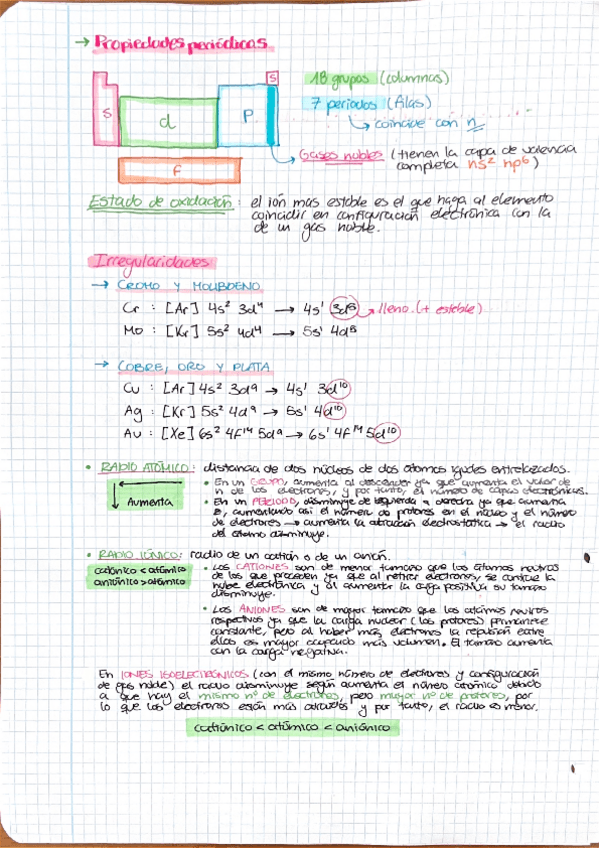 → Propiedades periódicas
S
d
P
S
f
18 grupos (columnas)
7 periodos (filas)
↳ coincide con n
→ Gases nobles (tienen la capa de valencia
completa ns² np⁶)
Estado de oxidación: el ión mas estable es el que haga al elemento
coincidir en configuración electrónica con la
de un gas noble.
Irregularidades
→ CROMO Y MOLIBDENO
Cr : [Ar] 4s² 3d⁴ → 4s¹ 3d⁵ → lleno. (+ estable)
Mo : [Kr] 5s² 4d⁴ → 5s¹ 4d⁵
→ COBRE, ORO Y PLATA
Cu : [Ar] 4s² 3d⁹ → 4s¹ 3d¹⁰
Ag : [Kr] 5s² 4d⁹ → 5s¹ 4d¹⁰
Au : [Xe] 6s² 4f¹⁴ 5d⁹ → 6s¹ 4f¹⁴ 5d¹⁰
• RADIO ATÓMICO: distancia de dos núcleos de dos átomos iguales entrelazados.
Aumenta
• En un GRUPO, aumenta al descender ya que aumenta el valor de
n de los electrones, y por tanto, el número de capas electrónicas.
• En un PERIODO, disminuye de izquierda a derecha ya que aumenta
Z, aumentando así el número de protones en el núcleo y el número
de electrones → aumenta la atracción electrostática → el radio
del átomo disminuye.
• RADIO IÓNICO: radio de un catión o de un anión.
catiónico < atómico
aniónico > atómico
• Los CATIONES son de menor tamaño que los átomos neutros
de los que proceden ya que al retirar electrones, se contrae la
nube electrónica y al aumentar la carga positiva su tamaño
disminuye.
• Los ANIONES son de mayor tamaño que los átomos neutros
respectivos ya que la carga nuclear (los protones) permanece
constante, pero al haber más electrones la repulsión entre
ellos es mayor ocupando más volumen. El tamaño aumenta
con la carga negativa.
En IONES ISOELECTRÓNICOS (con el mismo número de electrones y configuración
de gas noble) el radio disminuye según aumenta el número atómico debido
a que hay el mismo nº de electrones, pero mayor nº de protones, por
lo que los electrones están más atraídos y por tanto, el radio es menor.
catiónico < atómico < aniónico